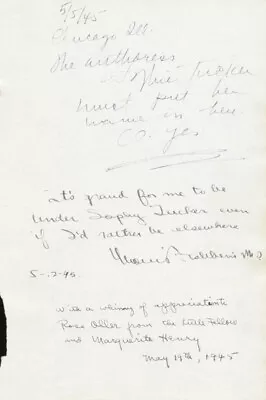 5/5/45
Chicago Ill.
The authoress
Sophie Tucker
must put her
name in here
So. Yes
It's grand for me to be
under Sophy Tucker even
if I'd rather be elsewhere
Morris Fishbein M.D.
5-12-45
With a whinny of appreciation to
Rose Oller from the Little Fellow
and Marguerite Henry
May 19th, 1945